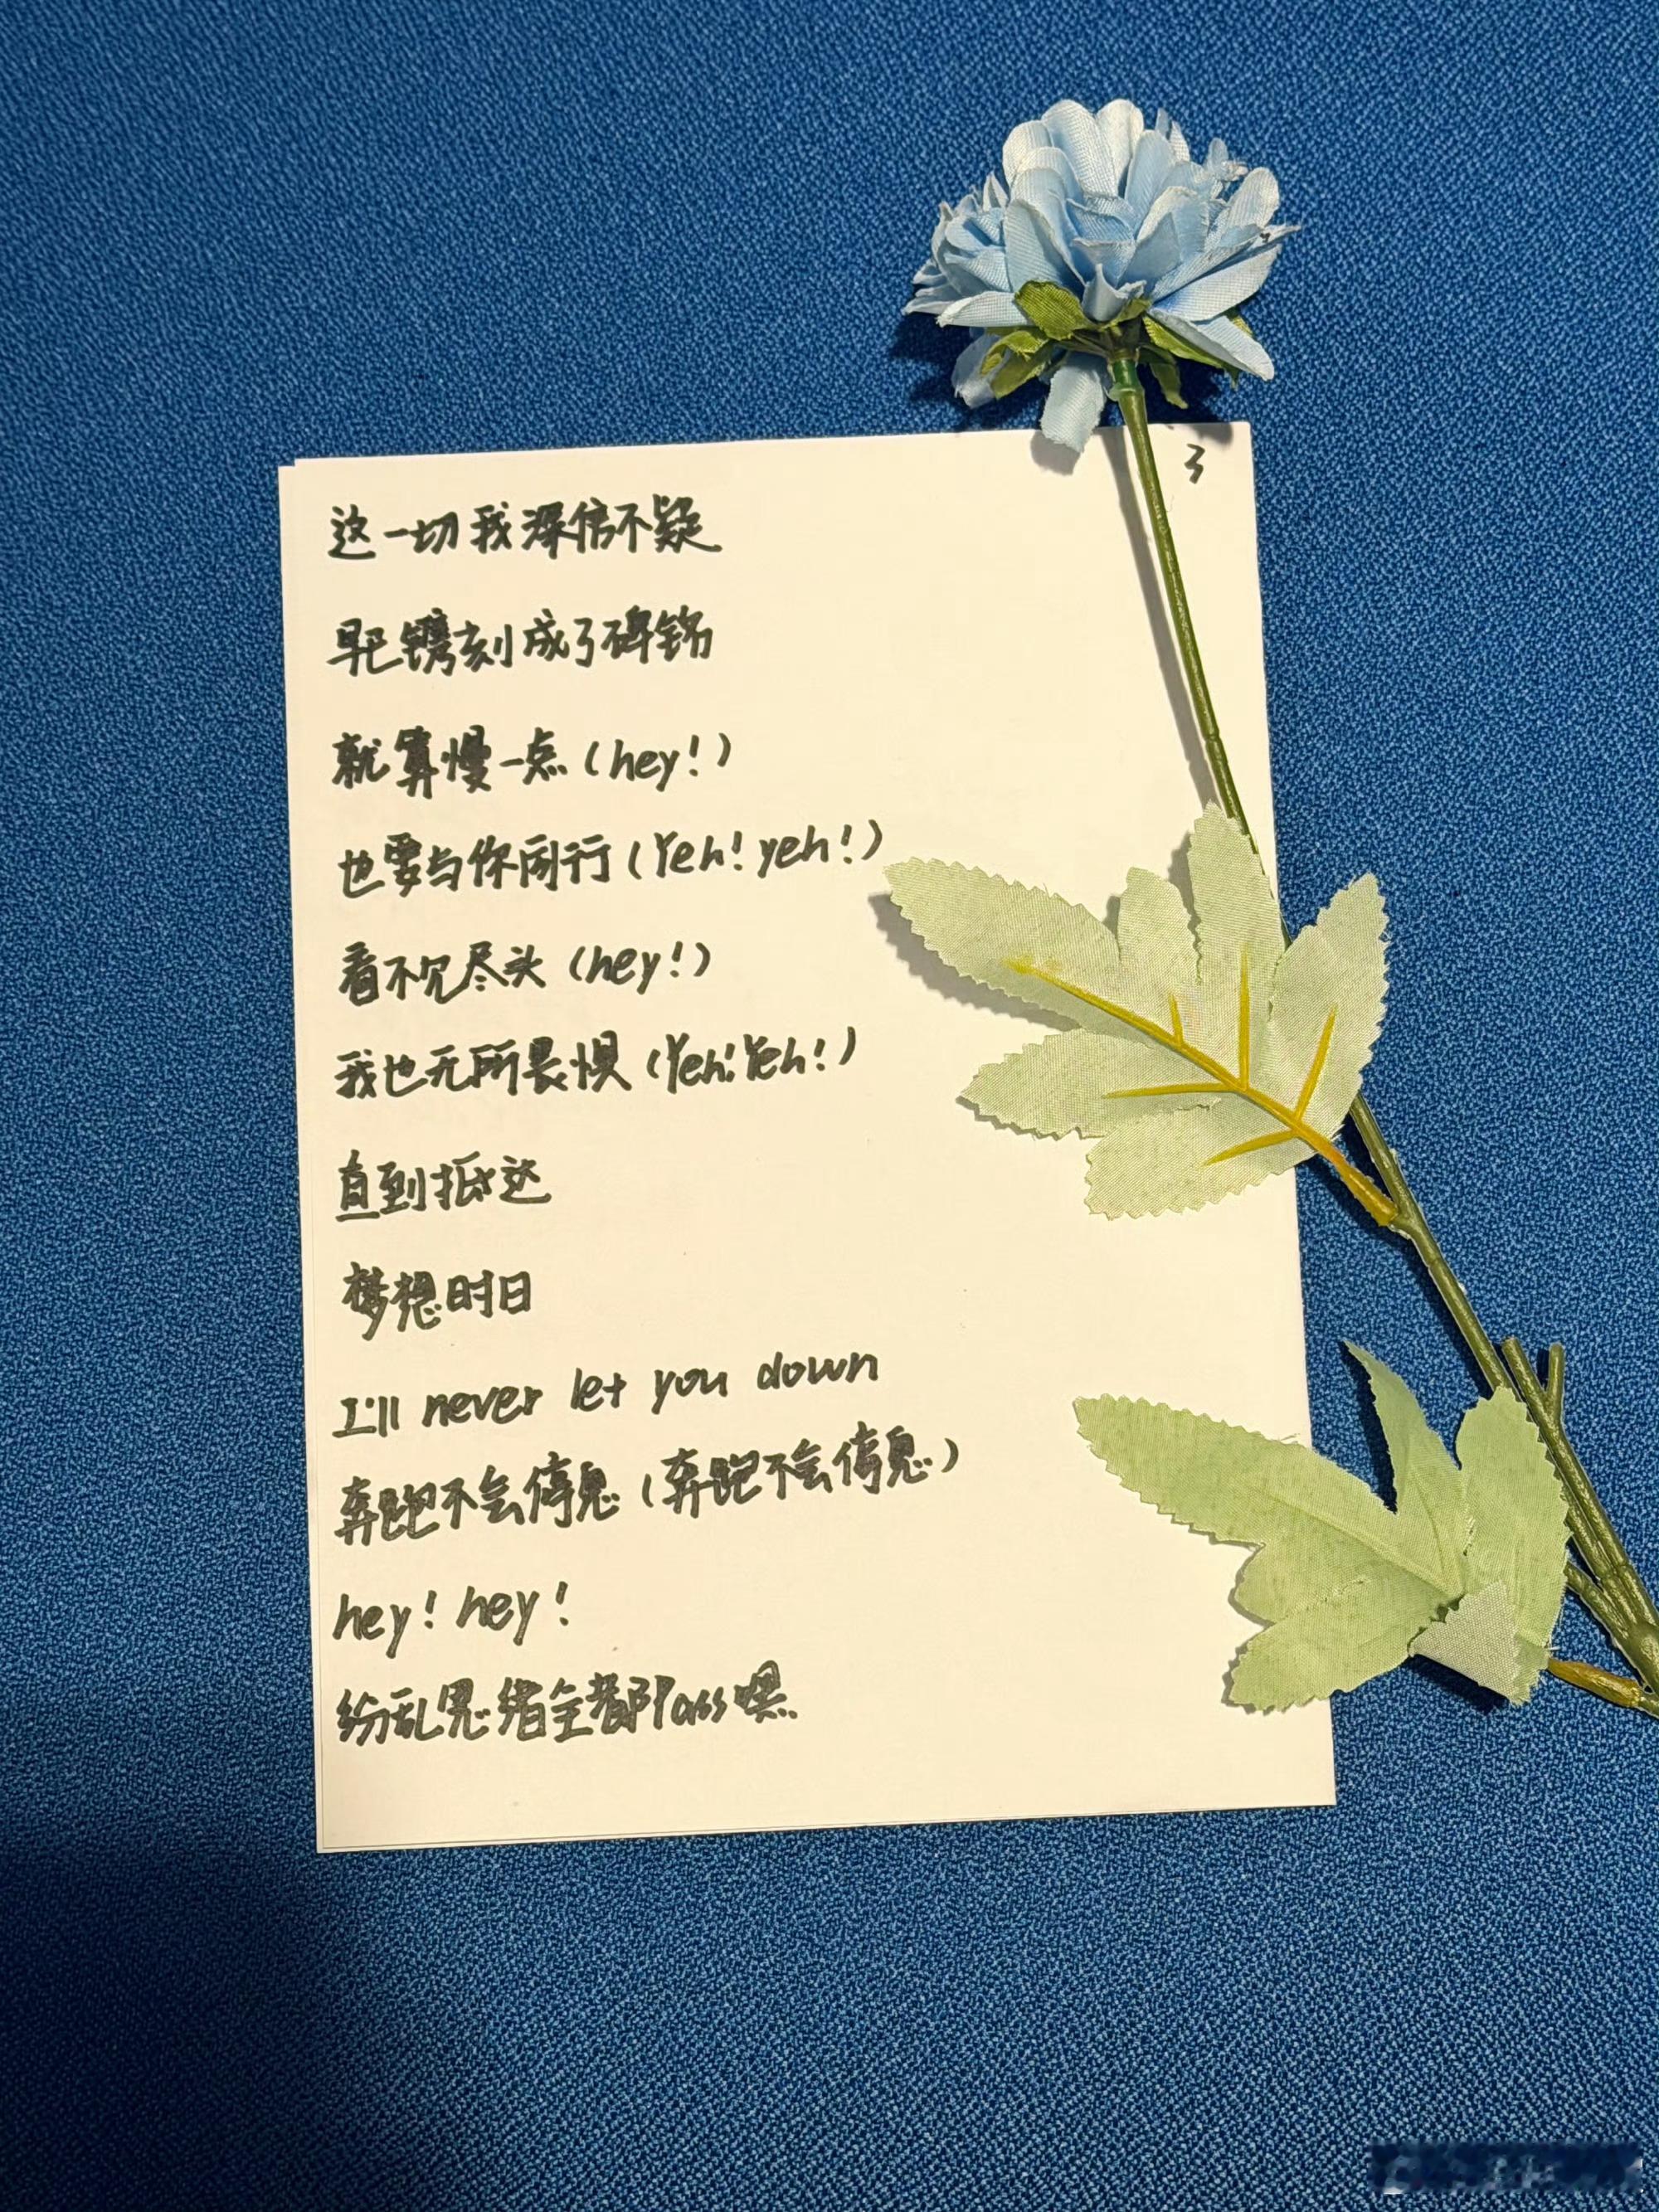 3
这一切我深信不疑
早已镌刻成了碑铭
就算慢一点(hey!)
也要与你同行(Yeh! yeh!)
看不见尽头(hey!)
我也无所畏惧(Yeh! Yeh!)
直到抵达
梦想时日
I'll never let you down
奔跑不会停息(奔跑不会停息)
hey! hey!
纷乱思绪全都Pass嘿